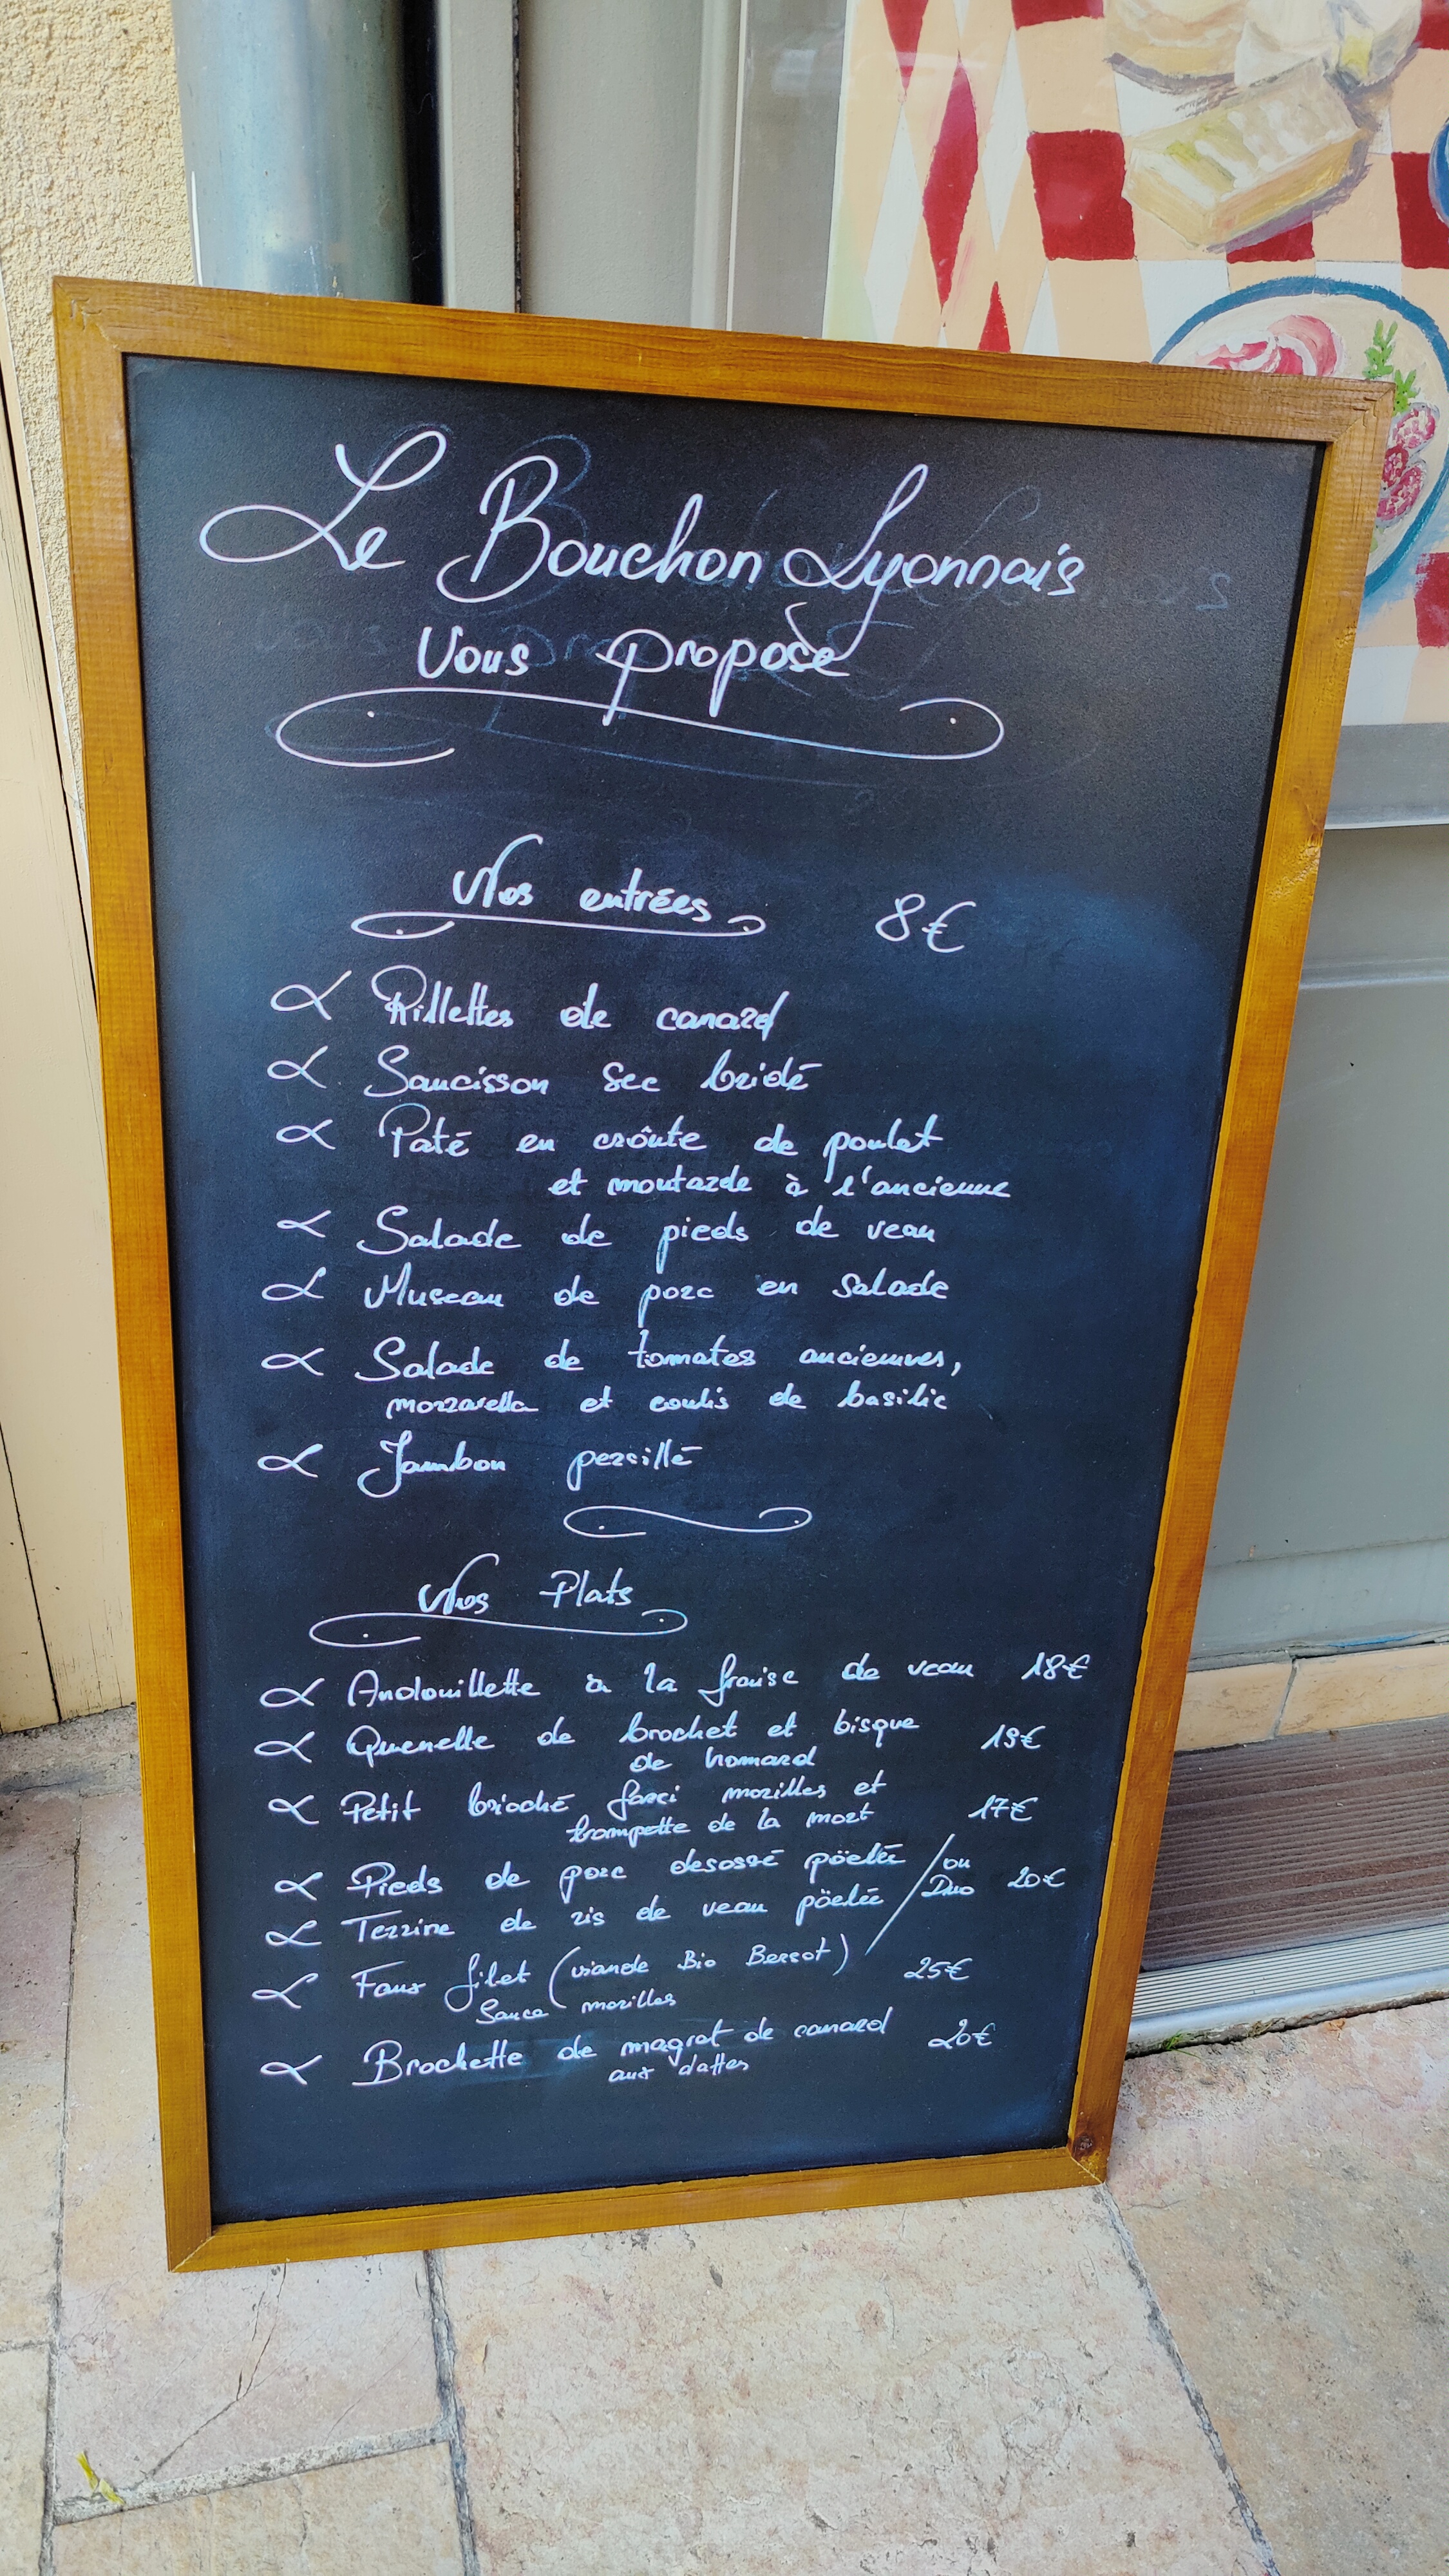 Le Bouchon Lyonnais
Vous propose
Nos entrées 8€
Rillettes de canard
Saucisson sec bridé
Paté en crôute de poulet
et moutarde à l'ancienne
Salade de pieds de veau
Museau de porc en salade
Salade de tomates anciennes,
mozzarella et coulis de basilic
Jambon persillé
Nos Plats
Andouillette à la fraise de veau 18€
Quenelle de brochet et bisque
de homard 19€
Petit brioché farci morilles et
trompette de la mort 17€
Pieds de porc desossé pöelée / ou
Terrine de ris de veau pöelée / Duo 20€
Faux filet (viande Bio Bersot) 25€
Sauce morilles
Brochette de magret de canard 20€
aux dattes